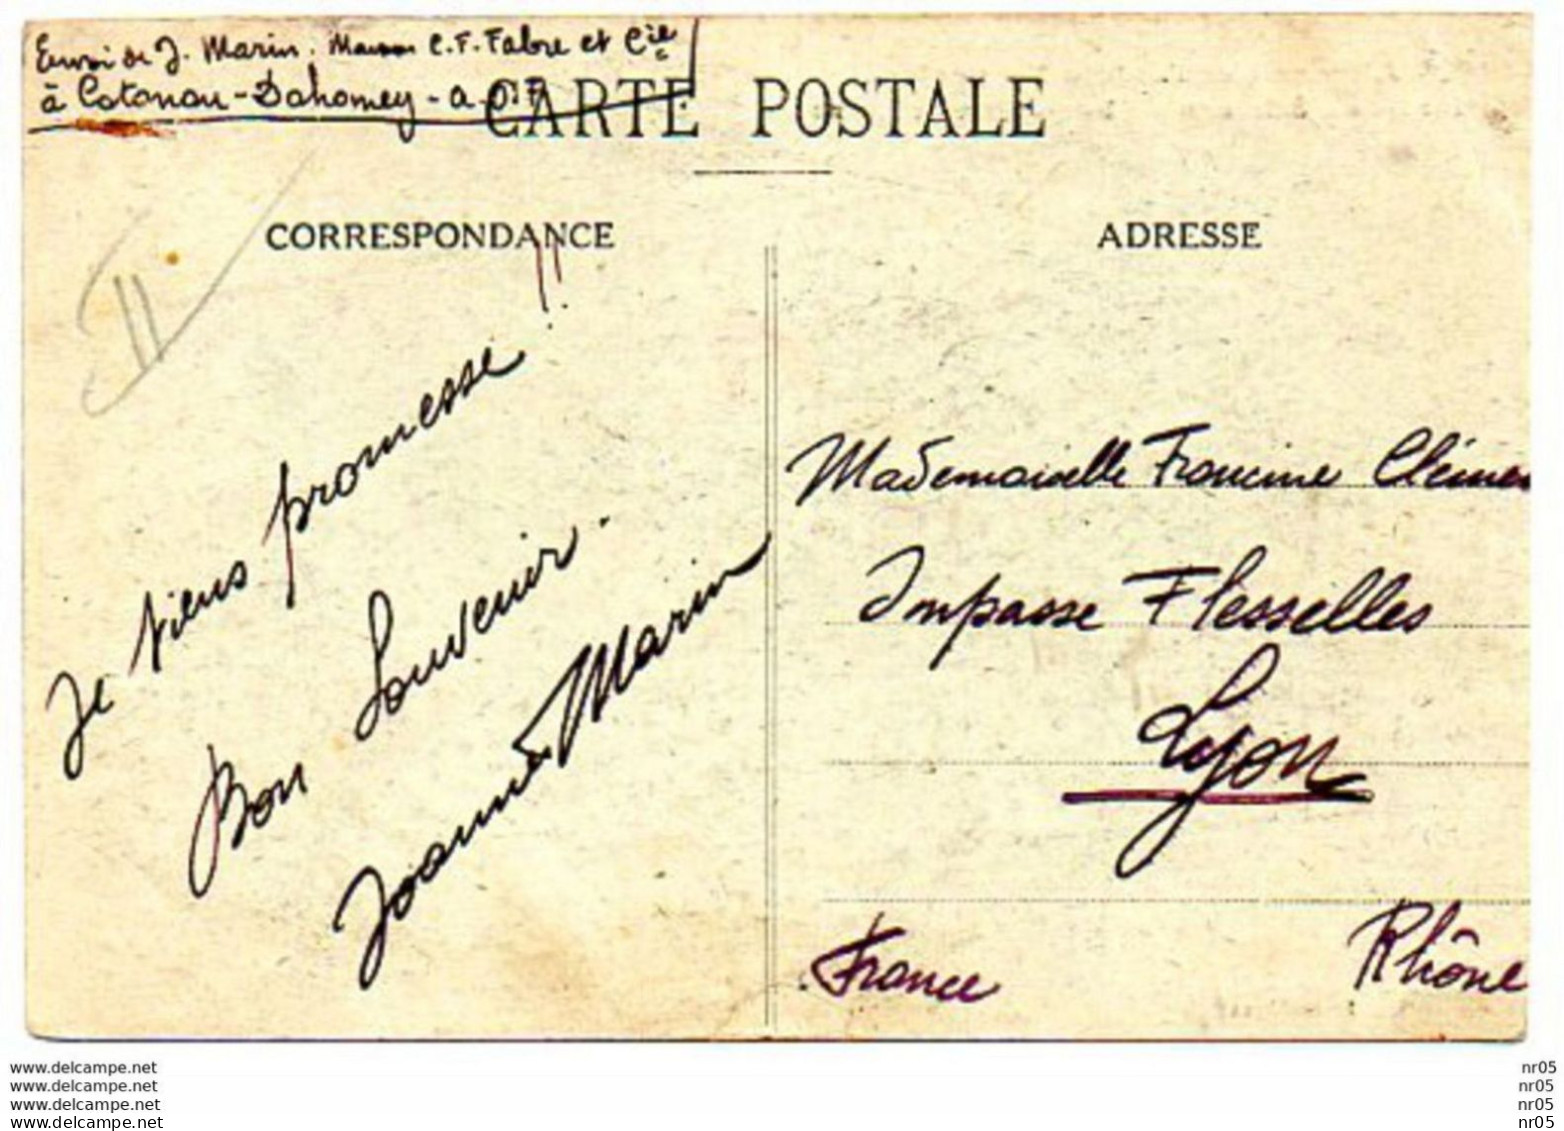 Envoi de J. Marin. Maison C.F. Fabre et Cie
à Cotonou - Dahomey - A.O.F.
CARTE POSTALE
CORRESPONDANCE
ADRESSE
II
Je tiens promesse !!
Bon Souvenir.
Joannès Marin
Mademoiselle Francine Clémen
Impasse Flesselles
Lyon
Rhône
France
www.delcampe.net
www.delcampe.net
www.delcampe.net
www.delcampe.net
nr05
nr05
nr05
nr05